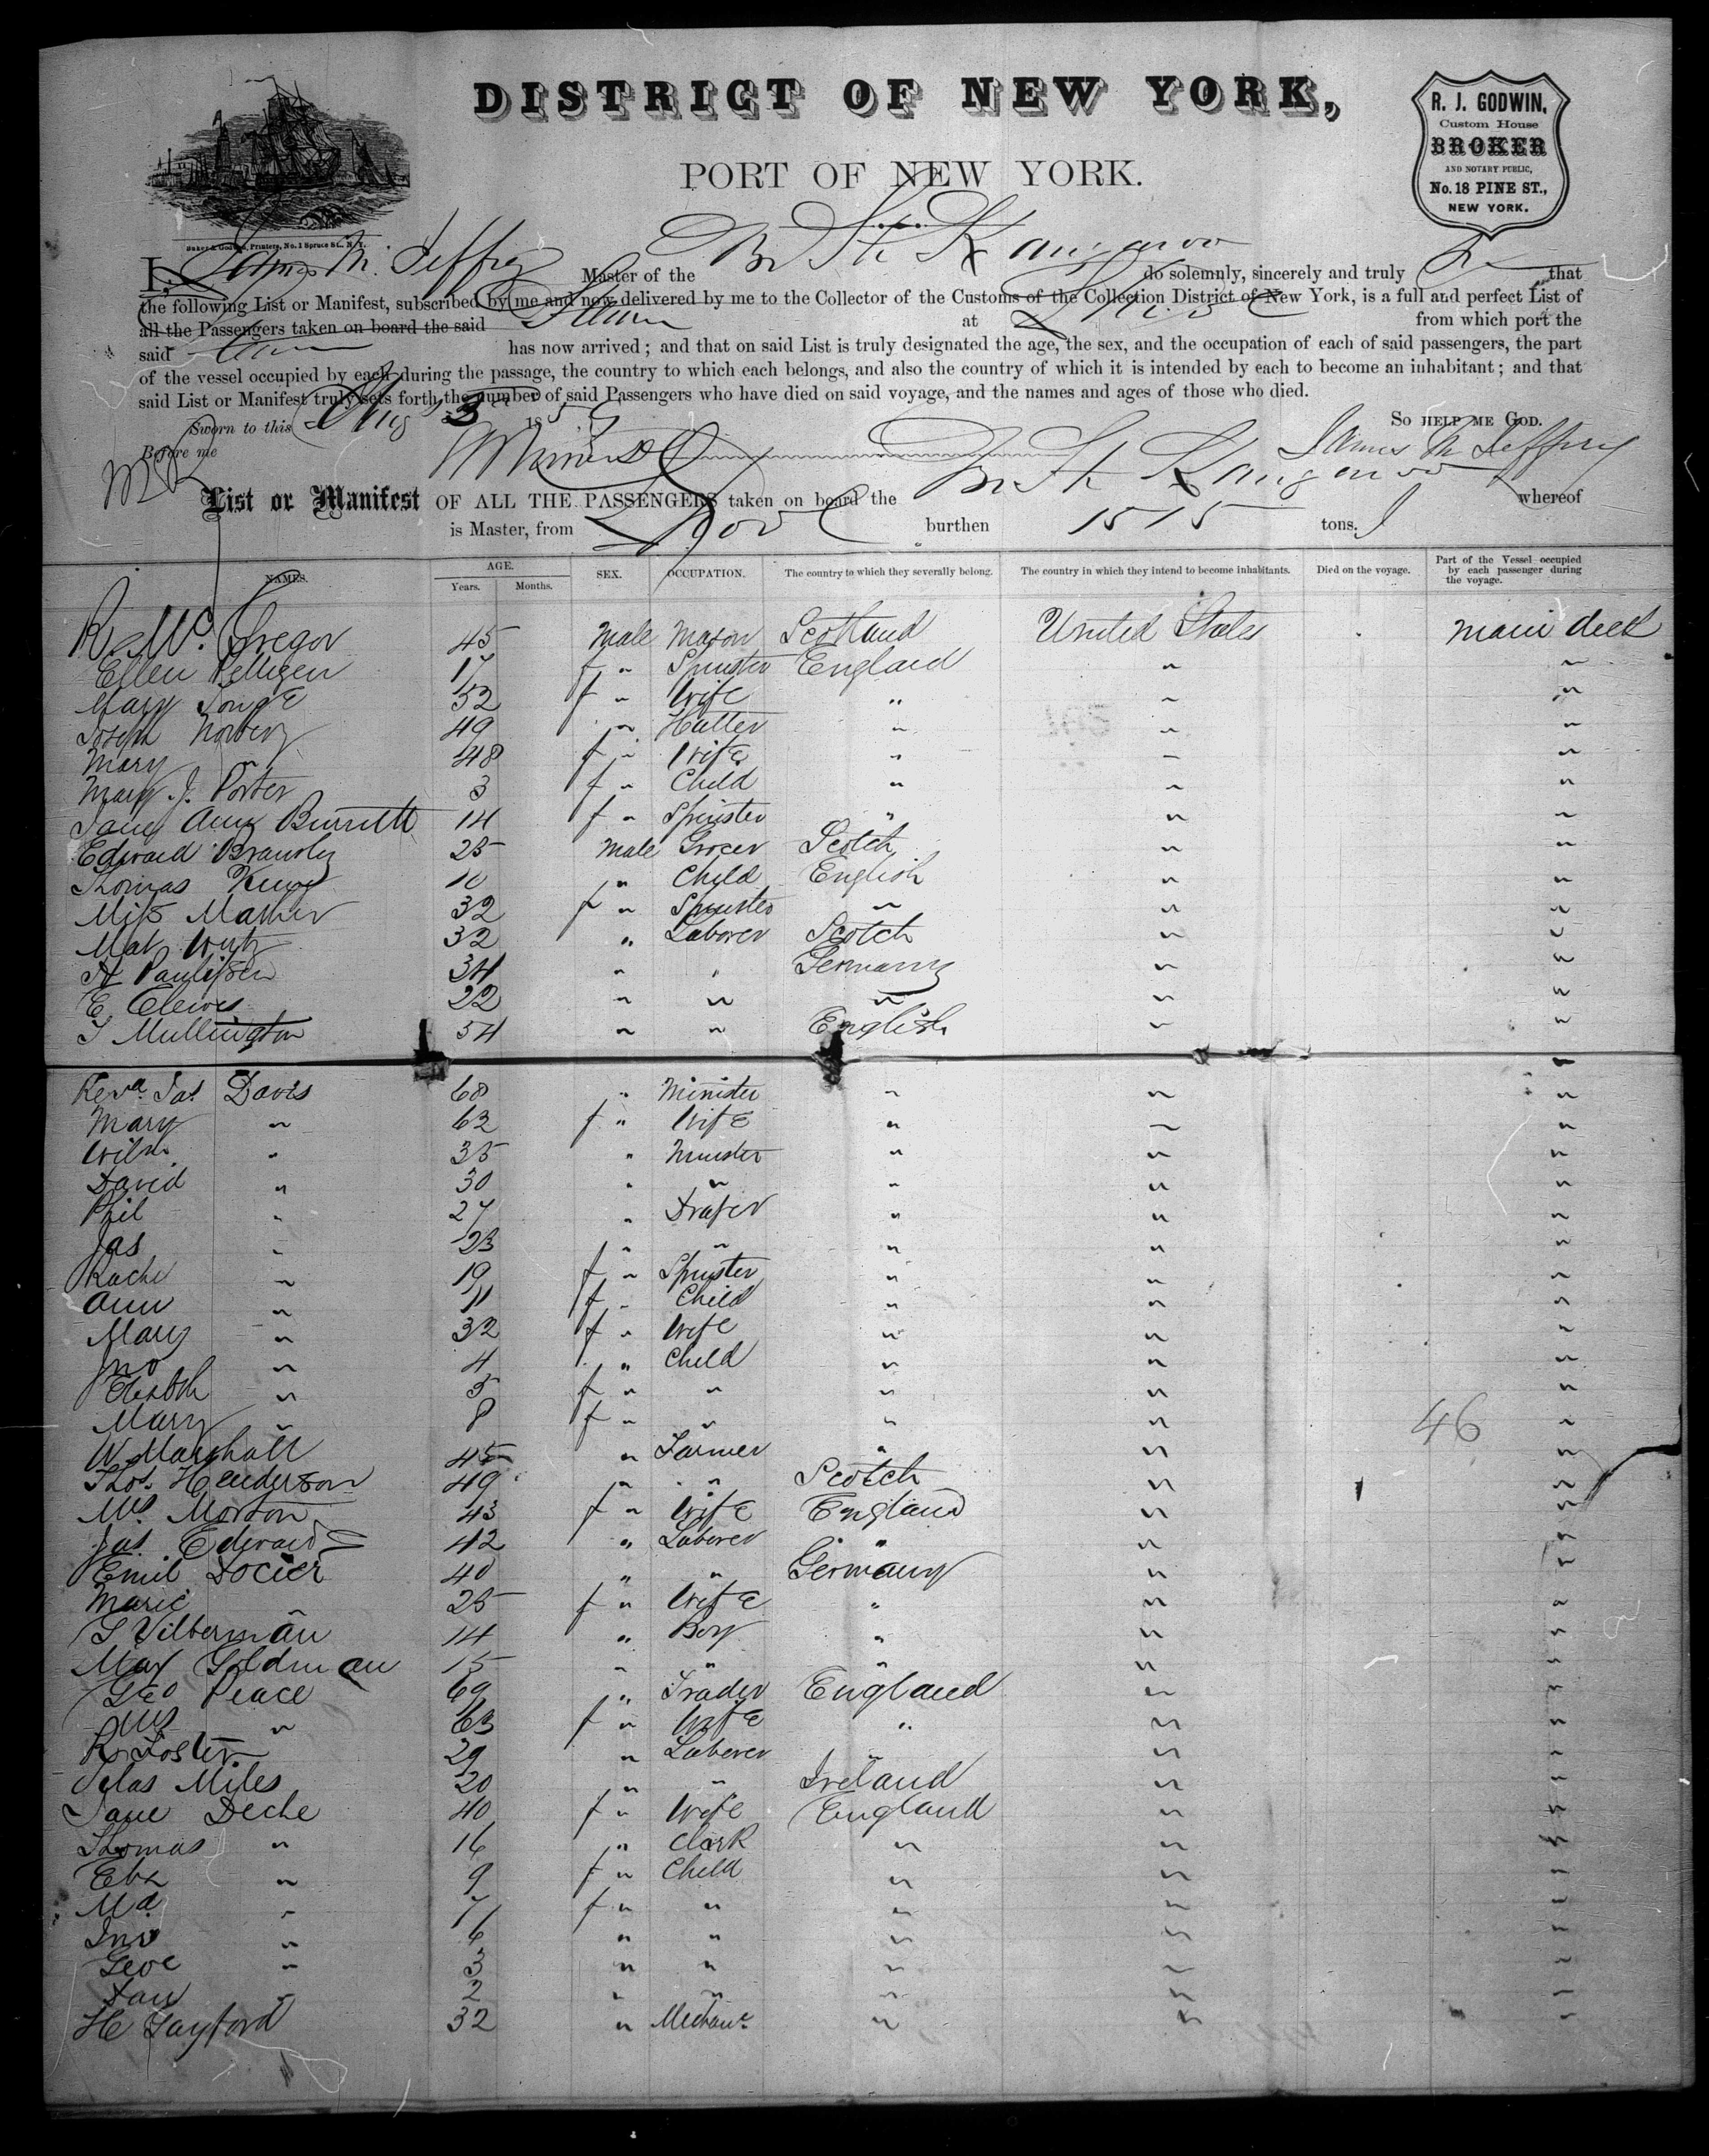 DISTRICT OF NEW YORK,
PORT OF NEW YORK.
R. J. GODWIN,
Custom House
BROKER
AND NOTARY PUBLIC,
No. 18 PINE ST.,
NEW YORK.
Baker & Godwin, Printers, No. 1 Spruce St., N. Y.
I, James M. Jeffrey Master of the Br Str Kangaroo do solemnly, sincerely and truly that
the following List or Manifest, subscribed by me and now delivered by me to the Collector of the Customs of the Collection District of New York, is a full and perfect List of
all the Passengers taken on board the said Steamer at from which port the
said has now arrived; and that on said List is truly designated the age, the sex, and the occupation of each of said passengers, the part
of the vessel occupied by each during the passage, the country to which each belongs, and also the country of which it is intended by each to become an inhabitant; and that
said List or Manifest truly sets forth the number of said Passengers who have died on said voyage, and the names and ages of those who died.
Sworn to this Aug 3 185 So help me God.
Before me James M Jeffrey
List or Manifest OF ALL THE PASSENGERS taken on board the Br Str Kangaroo whereof
is Master, from Lpool burthen 1515 tons.
NAMES. AGE. Years. Months. SEX. OCCUPATION. The country to which they severally belong. The country in which they intend to become inhabitants. Died on the voyage. Part of the Vessel occupied by each passenger during the voyage.
R. Mc.Gregor 45 Male Mason Scotland United States Main deck
Ellen 17 f " Spinster England " "
Mary 52 f " Wife " " "
Joseph 49 " Hatter " " "
Mary " 48 f " Wife " " "
Mary J. Porter 3 f " Child " " "
Jane Ann Burnett 14 f " Spinster " " "
Edward 25 Male Grocer Scotch " "
Thomas 10 " Child English " "
Miss Mather 32 f " Spinster " " "
Mat 32 " Laborer Scotch " "
A Paulissen 34 " " Germany " "
E. Clewes 22 " " " " "
T Mullington 54 " " English " "
Revd. Jas Davis 68 " Minister " " "
Mary " 62 f " Wife " " "
Willm " 35 " Minister " " "
David " 30 " " " " "
Phil " 27 " Draper " " "
Jas " 23 " " " " "
Rachl " 19 f " Spinster " " "
Ann " 11 f " Child " " "
Mary " 32 f " Wife " " "
Jno " 4 " Child " " "
Elizbth " 5 f " " " " "
Mary " 8 f " " " " "
46
W. Marshall 45 " Farmer " " "
Thos. Henderson 49 " " Scotch " "
Mrs. Morton 43 f " Wife England " "
Jas. Edwards 42 " Laborer " " "
Emil Docier 40 " " Germany " "
Marie " 25 f " Wife " " "
S Vilberman 14 " Boy " " "
Max Goldman 15 " " " " "
Geo Peace 69 " Trader England " "
Mrs " 63 f " Wife " " "
R. Foster 29 " Laborer " " "
Silas Miles 20 " " Ireland " "
Jane Deche 40 f " Wife England " "
Thomas " 16 " Clerk " " "
Ebz " 9 f " Child " " "
Ma " 7 f " " " " "
Jno " 6 " " " " "
Geoe " 3 " " " " "
Dan " 2 " " " " "
H Gayford 32 " Mechanc " " "